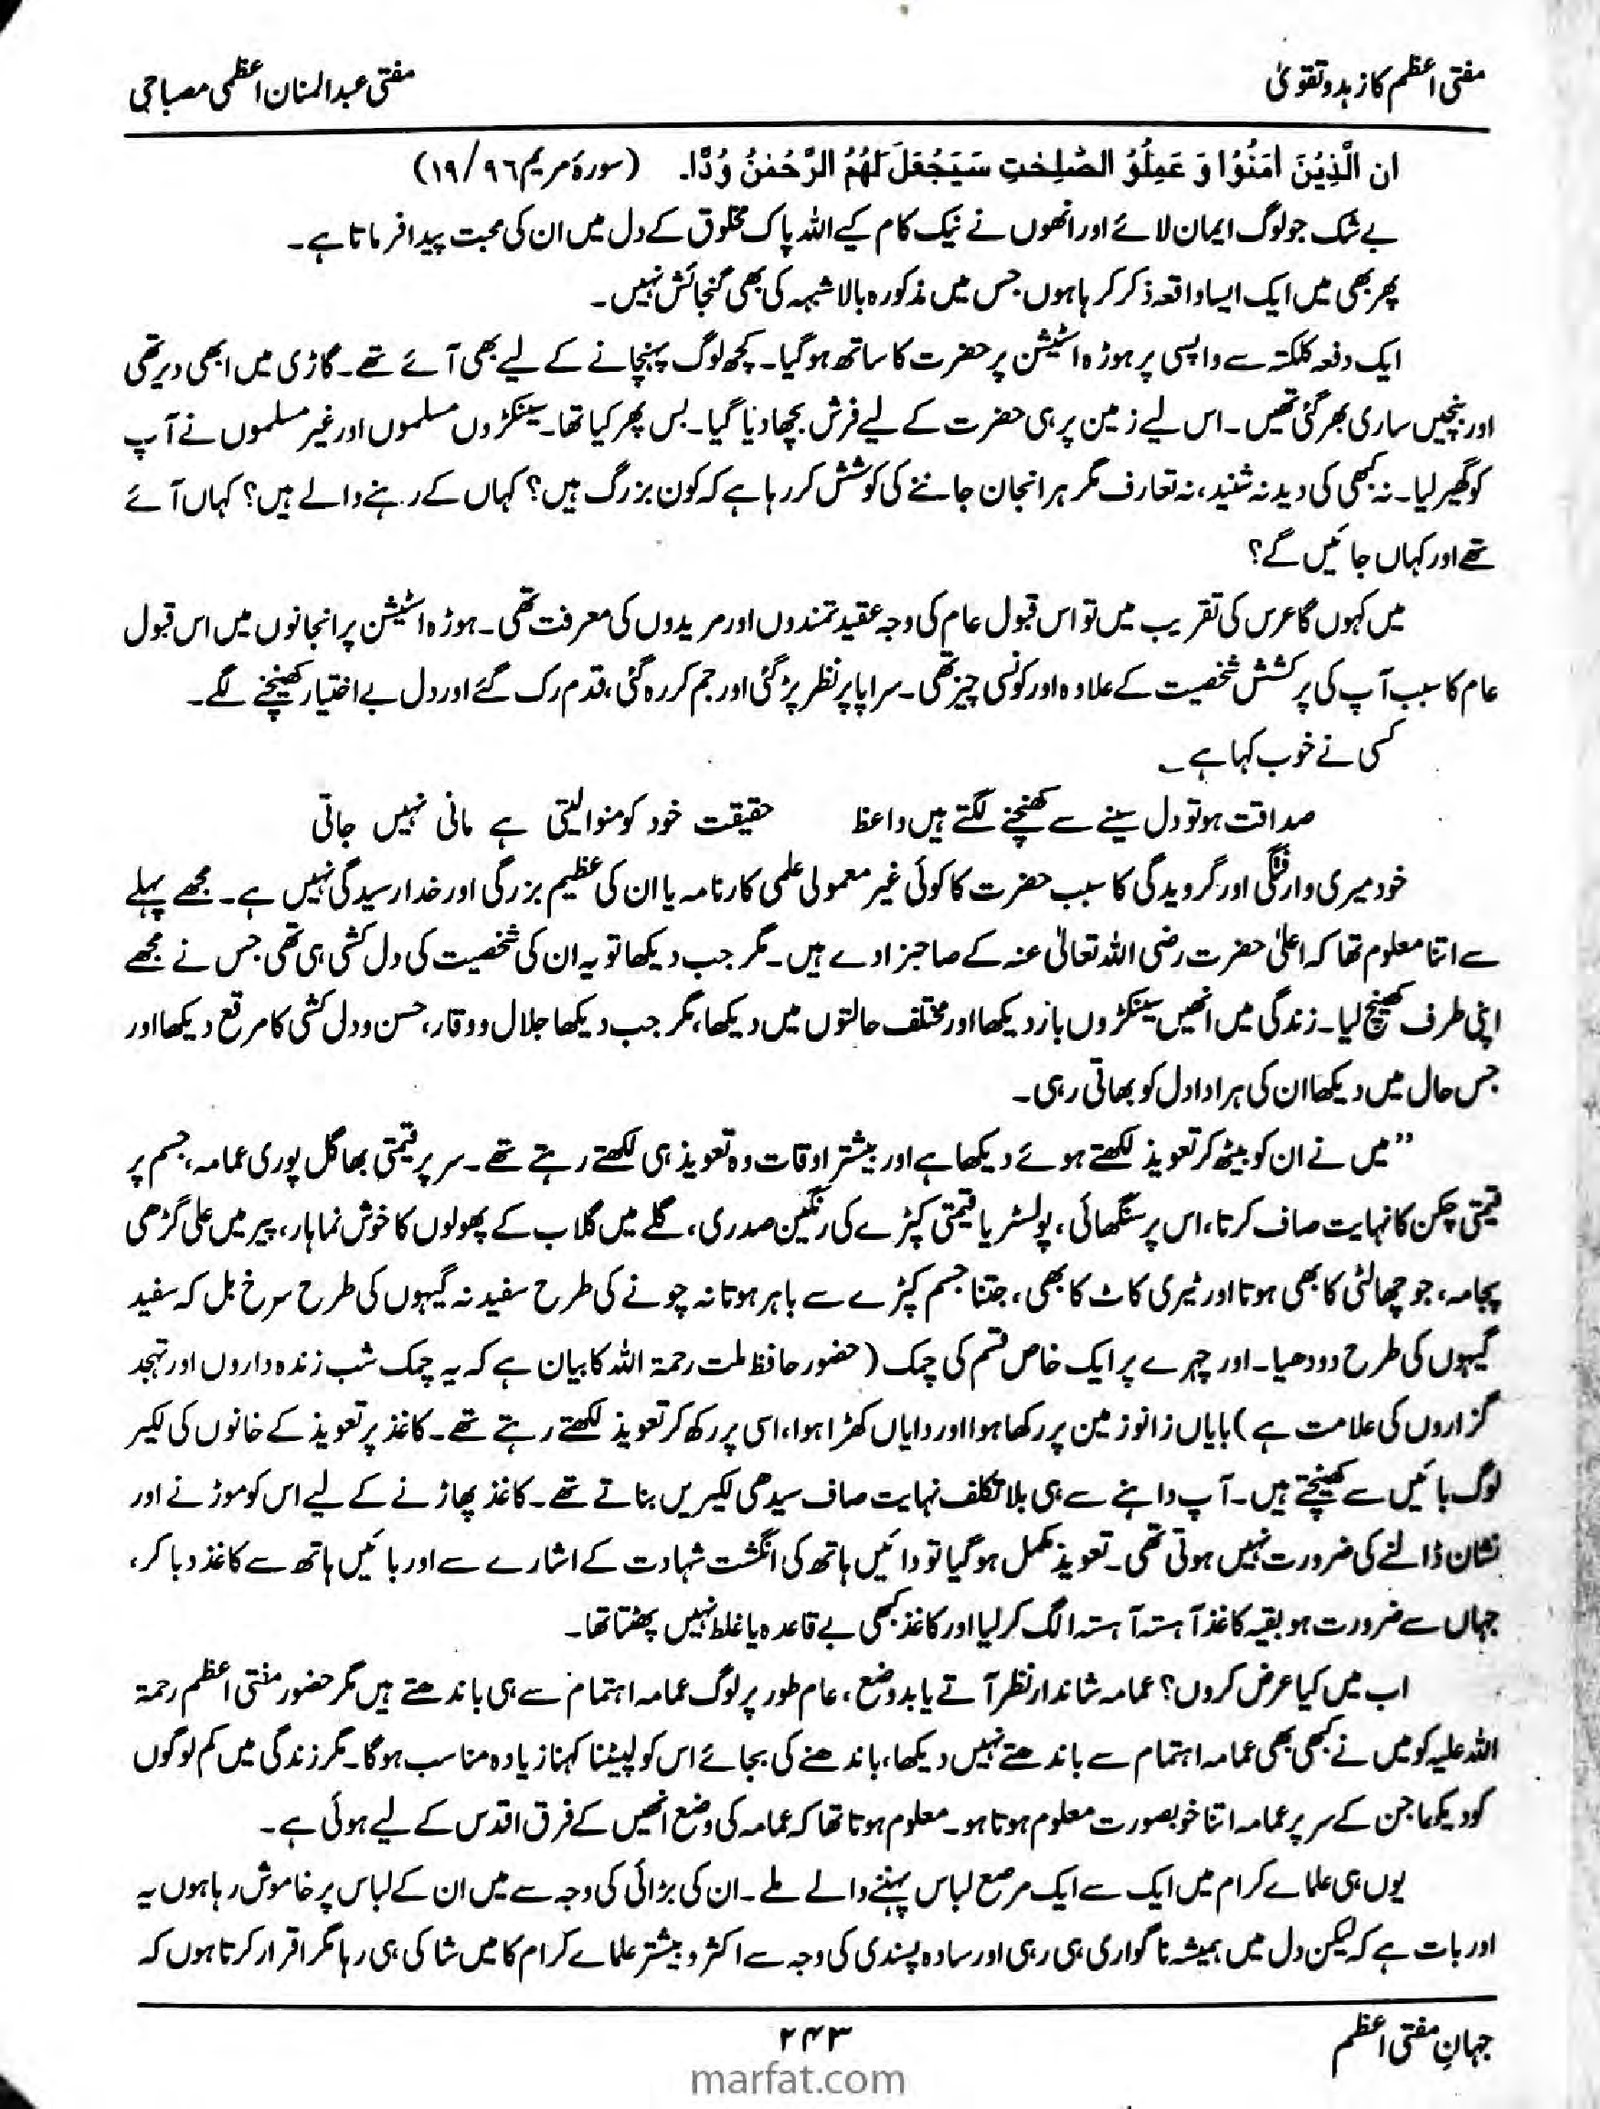 مفتی اعظم کا زہد و تقویٰ
مفتی عبدالمنان اعظمی مصباحی
ان الَّذِیْنَ اٰمَنُوْا وَ عَمِلُوْ الصّٰلِحٰتِ سَیَجْعَلَ لَھُمُ الرَّحْمٰنُ وُدًّا۔ (سورۂ مریم ۹۶/۱۹)
بے شک جو لوگ ایمان لائے اور انھوں نے نیک کام کیے اللہ پاک مخلوق کے دل میں ان کی محبت پیدا فرماتا ہے۔
پھر بھی میں ایک ایسا واقعہ ذکر کر رہا ہوں جس میں مذکورہ بالا شبہہ کی بھی گنجائش نہیں۔
ایک دفعہ کلکتہ سے واپسی پر ہوڑہ اسٹیشن پر حضرت کا ساتھ ہو گیا۔ کچھ لوگ پہنچانے کے لیے بھی آئے تھے۔ گاڑی میں ابھی دیر تھی
اور بنچیں ساری بھر گئی تھیں۔ اس لیے زمین پر ہی حضرت کے لیے فرش بچھا دیا گیا۔ بس پھر کیا تھا۔ سینکڑوں مسلموں اور غیر مسلموں نے آپ
کو گھیر لیا۔ نہ کبھی کی دید نہ شنید، نہ تعارف مگر ہر انجان جاننے کی کوشش کر رہا ہے کہ کون بزرگ ہیں؟ کہاں کے رہنے والے ہیں؟ کہاں آئے
تھے اور کہاں جائیں گے؟
میں کہوں گا عرس کی تقریب میں تو اس قبول عام کی وجہ عقیدتمندوں اور مریدوں کی معرفت تھی۔ ہوڑہ اسٹیشن پر انجانوں میں اس قبول
عام کا سبب آپ کی پرکشش شخصیت کے علاوہ اور کونسی چیز تھی۔ سراپا پر نظر پڑ گئی اور جم کر رہ گئی، قدم رک گئے اور دل بے اختیار کھنچنے لگے۔
کسی نے خوب کہا ہے ؎
صداقت ہو تو دل سینے سے کھنچنے لگتے ہیں واعظ حقیقت خود کو منوا لیتی ہے مانی نہیں جاتی
خود میری وارفتگی اور گرویدگی کا سبب حضرت کا کوئی غیر معمولی علمی کارنامہ یا ان کی عظیم بزرگی اور خدا رسیدگی نہیں ہے۔ مجھے پہلے
سے اتنا معلوم تھا کہ اعلیٰ حضرت رضی اللہ تعالیٰ عنہ کے صاحبزادے ہیں۔ مگر جب دیکھا تو یہ ان کی شخصیت کی دل کشی ہی تھی جس نے مجھے
اپنی طرف کھینچ لیا۔ زندگی میں انھیں سینکڑوں بار دیکھا اور مختلف حالتوں میں دیکھا، مگر جب دیکھا جلال و وقار، حسن و دل کشی کا مرقع دیکھا اور
جس حال میں دیکھا ان کی ہر ادا دل کو بھاتی رہی۔
”میں نے ان کو بیٹھ کر تعویذ لکھتے ہوئے دیکھا ہے اور بیشتر اوقات وہ تعویذ ہی لکھتے رہتے تھے۔ سر پر قیمتی بھاگل پوری عمامہ، جسم پر
قیمتی چکن کا نہایت صاف کرتا، اس پر سنگھائی، پولسٹر یا قیمتی کپڑے کی رنگین صدری، گلے میں گلاب کے پھولوں کا خوش نما ہار، پیر میں علی گڑھی
پجامہ، جو چھالٹی کا بھی ہوتا اور ٹیری کاٹ کا بھی، جتنا جسم کپڑے سے باہر ہوتا نہ چونے کی طرح سفید نہ گیہوں کی طرح سرخ بل کہ سفید
گیہوں کی طرح دودھیا۔ اور چہرے پر ایک خاص قسم کی چمک (حضور حافظ ملت رحمۃ اللہ کا بیان ہے کہ یہ چمک شب زندہ داروں اور تہجد
گزاروں کی علامت ہے) بایاں زانو زمین پر رکھا ہوا اور دایاں کھڑا ہوا، اسی پر رکھ کر تعویذ لکھتے رہتے تھے۔ کاغذ پر تعویذ کے خانوں کی لکیر
لوگ بائیں سے کھینچتے ہیں۔ آپ داہنے سے ہی بلا تکلف نہایت صاف سیدھی لکیریں بناتے تھے۔ کاغذ پھاڑنے کے لیے اس کو موڑنے اور
نشان ڈالنے کی ضرورت نہیں ہوتی تھی۔ تعویذ مکمل ہو گیا تو دائیں ہاتھ کی انگشت شہادت کے اشارے سے اور بائیں ہاتھ سے کاغذ دبا کر،
جہاں سے ضرورت ہو بقیہ کاغذ آہستہ آہستہ الگ کر لیا اور کاغذ کبھی بے قاعدہ یا غلط نہیں پھٹتا تھا۔
اب میں کیا عرض کروں؟ عمامہ شاندار نظر آتے یا بدوضع، عام طور پر لوگ عمامہ اہتمام سے ہی باندھتے ہیں مگر حضور مفتی اعظم رحمۃ
اللہ علیہ کو میں نے کبھی بھی عمامہ اہتمام سے باندھتے نہیں دیکھا، باندھنے کی بجائے اس کو لپیٹنا کہنا زیادہ مناسب ہوگا۔ مگر زندگی میں کم لوگوں
کو دیکھا جن کے سر پر عمامہ اتنا خوبصورت معلوم ہوتا ہو۔ معلوم ہوتا تھا کہ عمامہ کی وضع انھیں کے فرق اقدس کے لیے ہوئی ہے۔
یوں ہی علمائے کرام میں ایک سے ایک مرصع لباس پہننے والے ملے۔ ان کی بڑائی کی وجہ سے میں ان کے لباس پر خاموش رہا ہوں یہ
اور بات ہے کہ لیکن دل میں ہمیشہ ناگواری ہی رہی اور سادہ پسندی کی وجہ سے اکثر و بیشتر علمائے کرام کا میں شاکی ہی رہا مگر اقرار کرتا ہوں کہ
جہانِ مفتی اعظم
۲۴۳
marfat.com